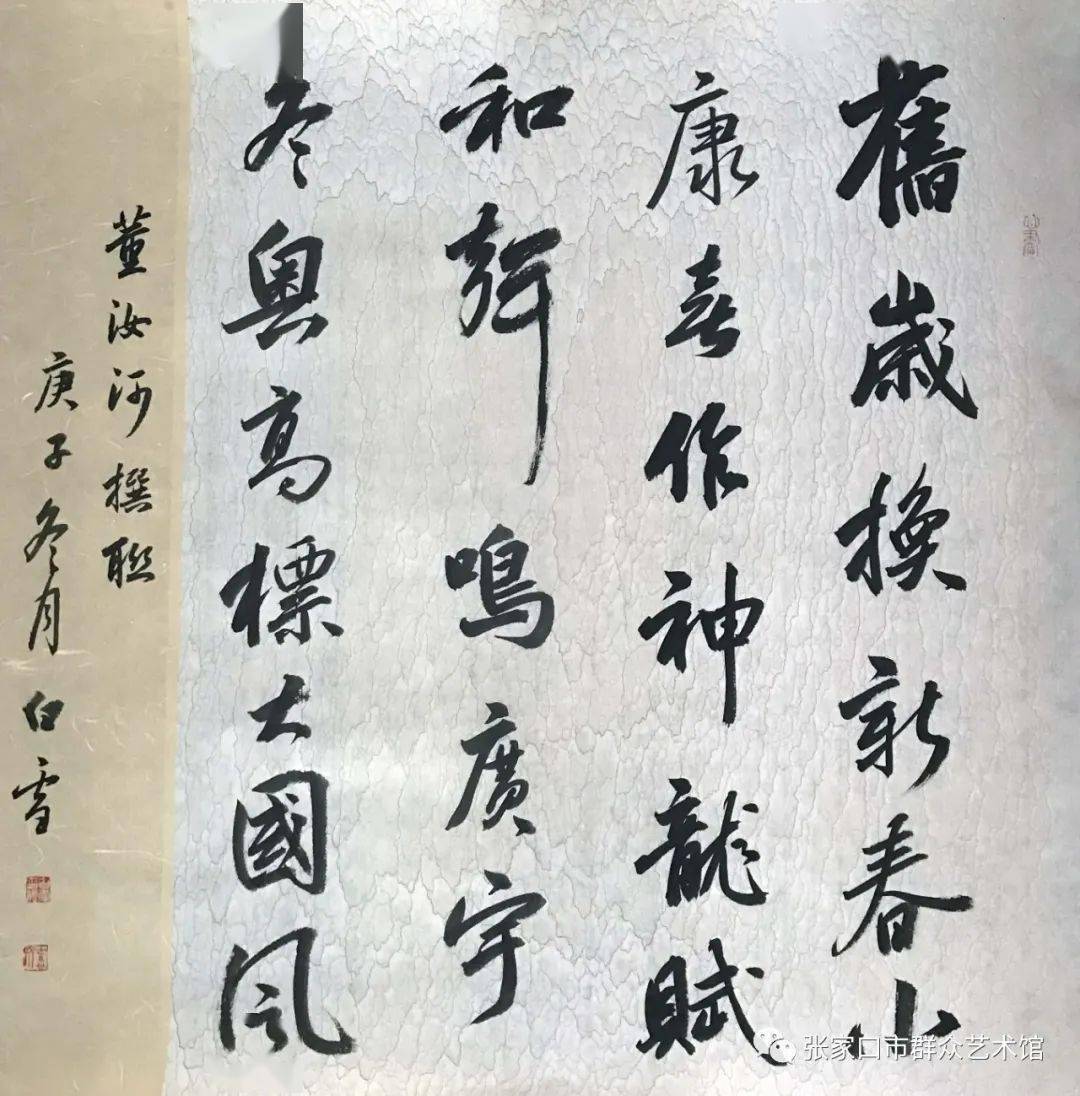 舊歲換新春小
康喜作神龍賦
和聲鳴廣宇
冬奥高標大國風
董汝河撰聯
庚子冬月 白雪
张家口市群众艺术馆